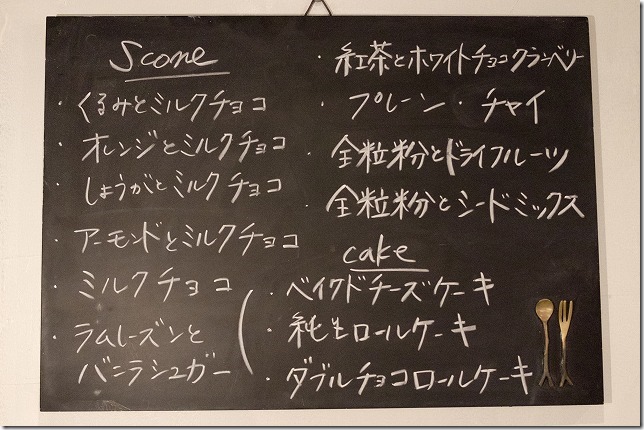 Scone
・くるみとミルクチョコ
・オレンジとミルクチョコ
・しょうがとミルクチョコ
・アーモンドとミルクチョコ
・ミルクチョコ
・ラムレーズンと
バニラシュガー
・紅茶とホワイトチョコクランベリー
・プレーン ・チャイ
・全粒粉とドライフルーツ
・全粒粉とシードミックス
cake
・ベイクドチーズケーキ
・純生ロールケーキ
・ダブルチョコロールケーキ